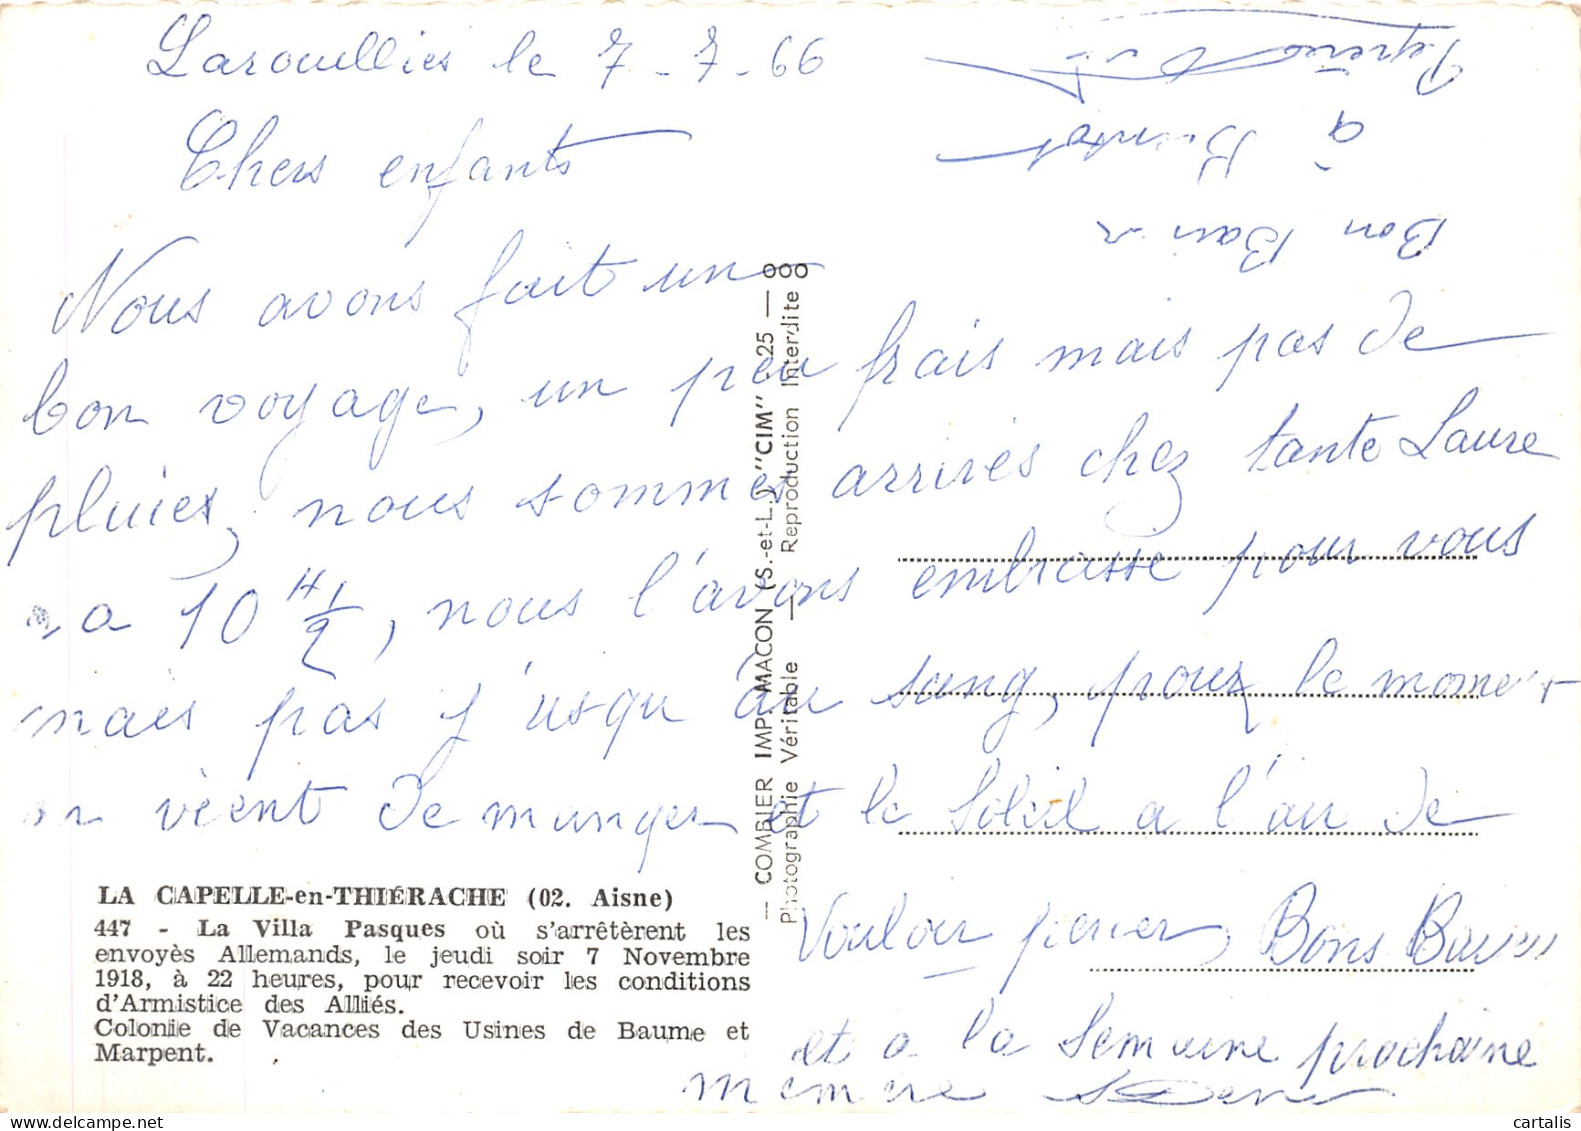 Larouillies le 7-7-66
Chers enfants
Nous avons fait un
bon voyage, un peu frais mais pas de
pluies, nous sommes arrivés chez tante Laure
a 10 H 1/2, nous l'avons embrasse pour vous
mais pas j'usqu'au sang, pour le moment
on vient de manger et le Soleil a l'air de
Vouloir percer, Bons Baisers
et a la Semaine prochaine
à Bientot
Bon Baiser
LA CAPELLE-en-THIÉRACHE (02. Aisne)
447 - La Villa Pasques où s'arrêtèrent les
envoyès Allemands, le jeudi soir 7 Novembre
1918, à 22 heures, pour recevoir les conditions
d'Armistice des Alliés.
Colonie de Vacances des Usines de Baume et
Marpent.
— COMBIER IMP. MACON (S.-et-L.) "CIM"
Photographie Véritable — Reproduction Interdite
cartalis